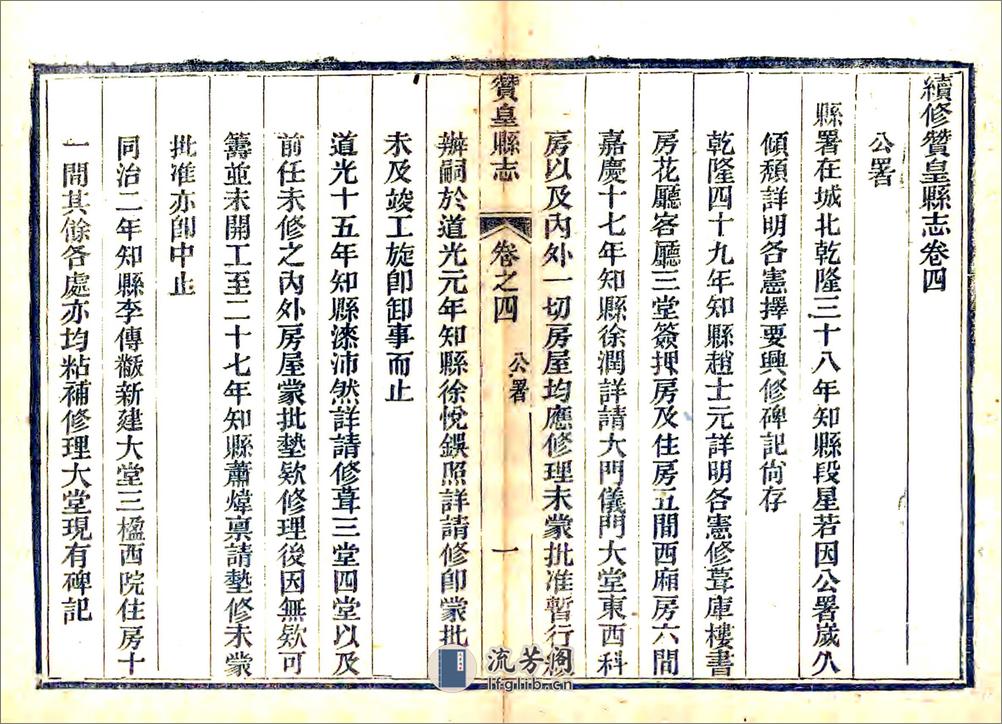 續修贊皇縣志卷四
公署
縣署在城北乾隆三十八年知縣段星若因公署歲久
傾頽詳明各憲擇要興修碑記尙存
乾隆四十九年知縣趙士元詳明各憲修葺庫樓書
房花廳客廳三堂簽押房及住房五間西廂房六間
嘉慶十七年知縣徐潤詳請大門儀門大堂東西科
房以及內外一切房屋均應修理未蒙批准暫行
贊皇縣志
卷之四
公署
一
辦嗣於道光元年知縣徐悅鋘照詳請修卽蒙批
未及竣工旋卽卸事而止
道光十五年知縣漆沛然詳請修葺三堂四堂以及
前任未修之內外房屋蒙批墊欵修理後因無欵可
籌並未開工至二十七年知縣蕭煒禀請墊修未蒙
批准亦卽中止
同治二年知縣李傳黻新建大堂三楹西院住房十
一間其餘各處亦均粘補修理大堂現有碑記
流芳閣
lfglib.cn